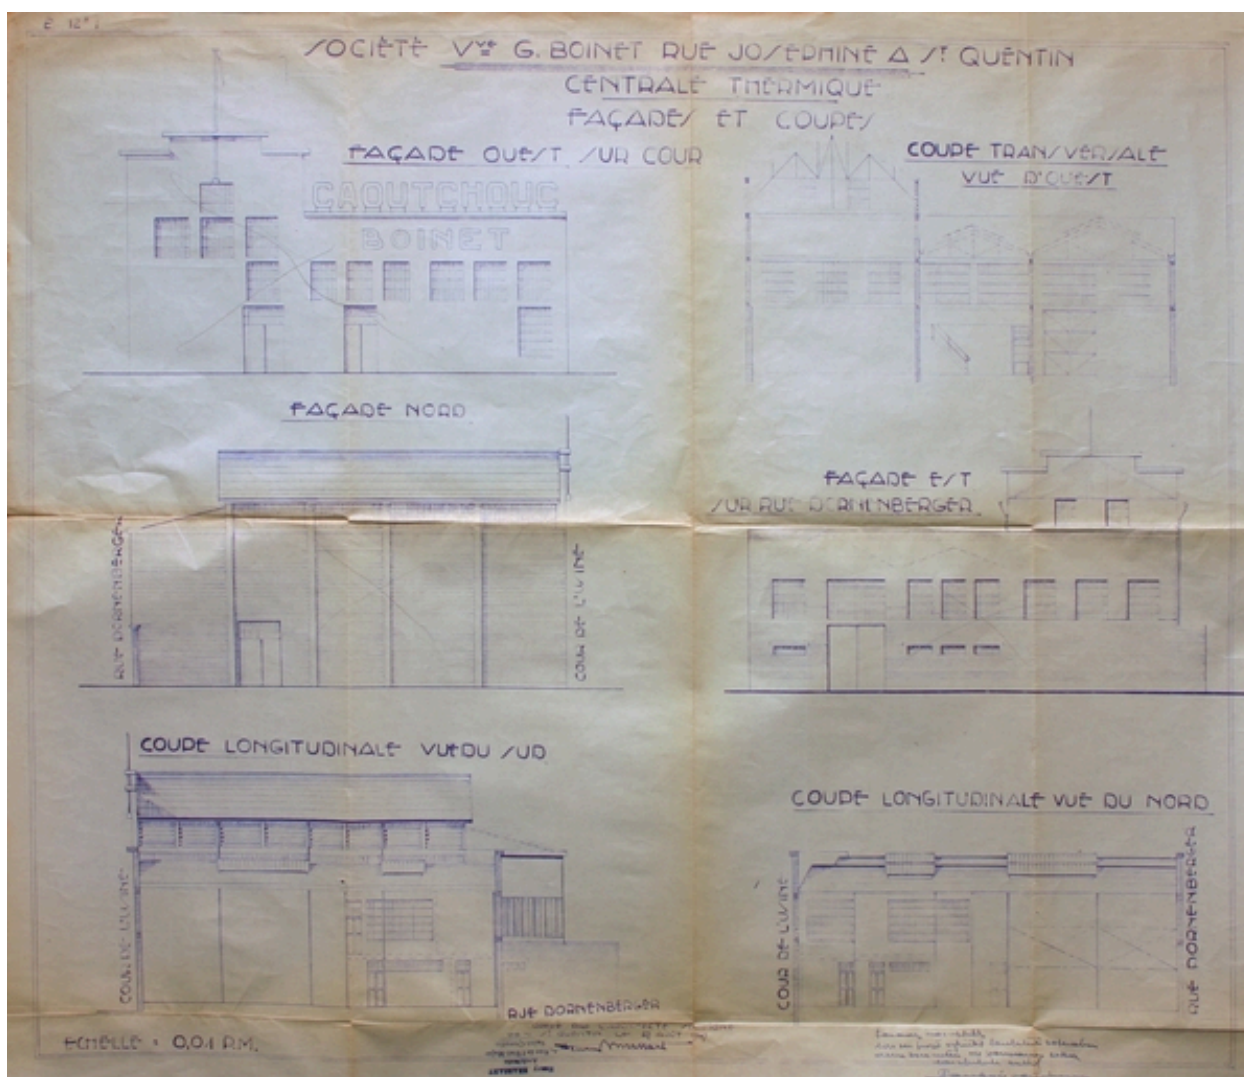 SOCIÉTÉ Vve G. BOINET RUE JOSEPHINE A St QUENTIN
CENTRALE THERMIQUE
FAÇADES ET COUPES
FAÇADE OUEST SUR COUR
CAOUTCHOUC
BOINET
COUPE TRANSVERSALE
VUE D'OUEST
FAÇADE NORD
RUE DORNENBERGER
COUR DE L'USINE
FAÇADE EST
SUR RUE DORNENBERGER
COUPE LONGITUDINALE VUE DU SUD
COUR DE L'USINE
RUE DORNENBERGER
COUPE LONGITUDINALE VUE DU NORD
COUR DE L'USINE
RUE DORNENBERGER
ECHELLE = 0,01 P.M.